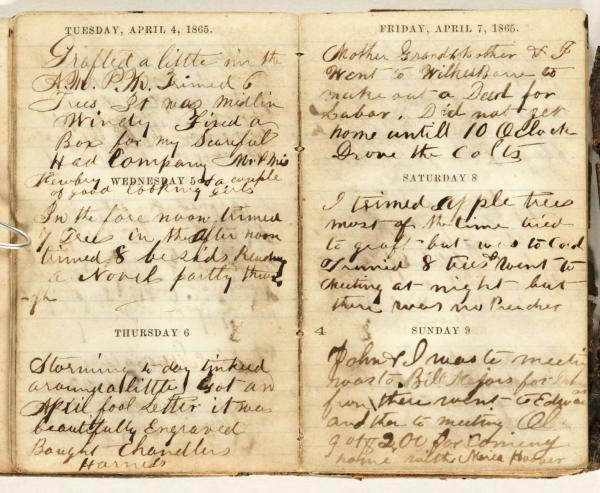 TUESDAY, APRIL 4, 1865.
Grafted a little in the
A.M. P.M. Trimed 6
Trees It was midlin
Windy Fixed a
Box for my
Had Company Mr & Mis
WEDNESDAY 5
& a couple
of good looking girls
In the fore noon trimed
7 Trees in the after noon
trimed 8 besids Reading
a Novel partly throu
gh
THURSDAY 6
Storming to day tinkered
around a little Got an
April fool Letter it was
beautifully Engraved
Bought Chandlers
Harness
FRIDAY, APRIL 7, 1865.
Mother Grandmother & I
Went to Wilkesbarre to
make out a Deed for
Labar. Did not get
home untill 10 OClock
Drove the Colts
SATURDAY 8
I trimed apple trees
most of the time tried
to graft but was to Cold
Trimed 8 trees & went to
Meeting at night but
there was no Preacher
4
SUNDAY 9
John & I was to meeting
was to Bill Majors for
from there went to
and then to meeting
got 2,00 for Coming
home with Maria Harver